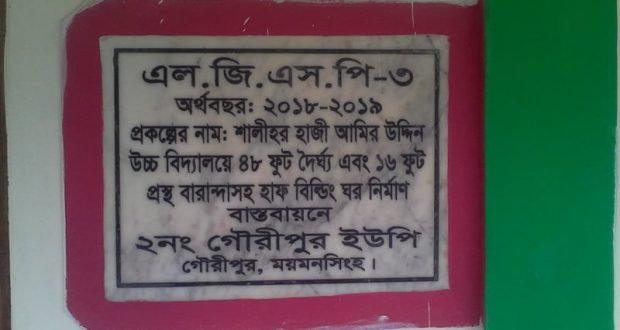 এল.জি.এস.পি-৩
অর্থবছর: ২০১৮-২০১৯
প্রকল্পের নাম: শালীহর হাজী আমির উদ্দিন
উচ্চ বিদ্যালয়ে ৪৮ ফুট দৈর্ঘ্য এবং ১৬ ফুট
প্রস্থ বারান্দাসহ হাফ বিল্ডিং ঘর নির্মাণ
বাস্তবায়নে
২নং গৌরীপুর ইউপি
গৌরীপুর, ময়মনসিংহ।